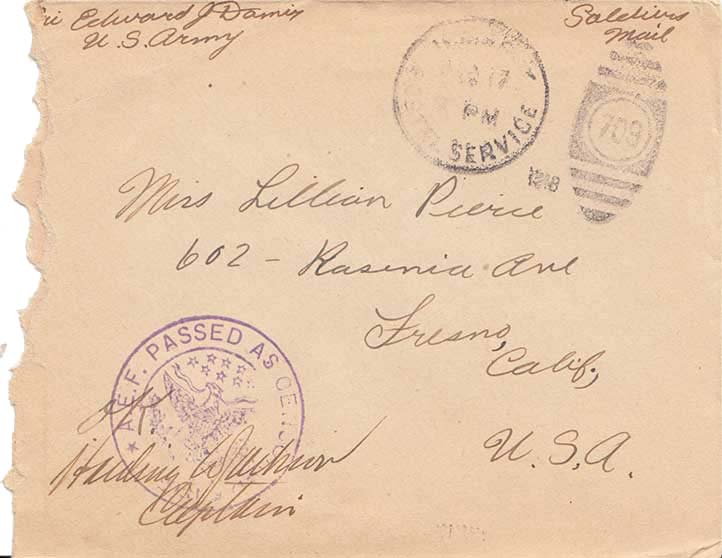 Edward J Damix
U.S. Army
Soldiers
Mail
17
PM
SERVICE
1918
709
Miss Lillian Pierce
602 - Rasenia Ave
Fresno,
Calif.,
U.S.A.
A.E.F. PASSED AS
OK
Captain